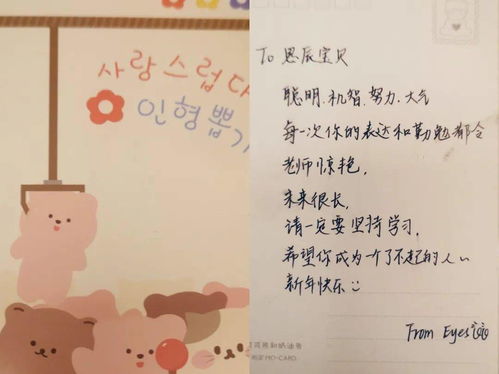 사랑스럽다
인형뽑기
To 恩辰宝贝
聪明、机智、努力、大气
每一次你的表达和勤勉都令
老师惊艳,
未来很长,
请一定要坚持学习,
希望你成为一个了不起的人~
新年快乐
From Eyes
MO-CARD